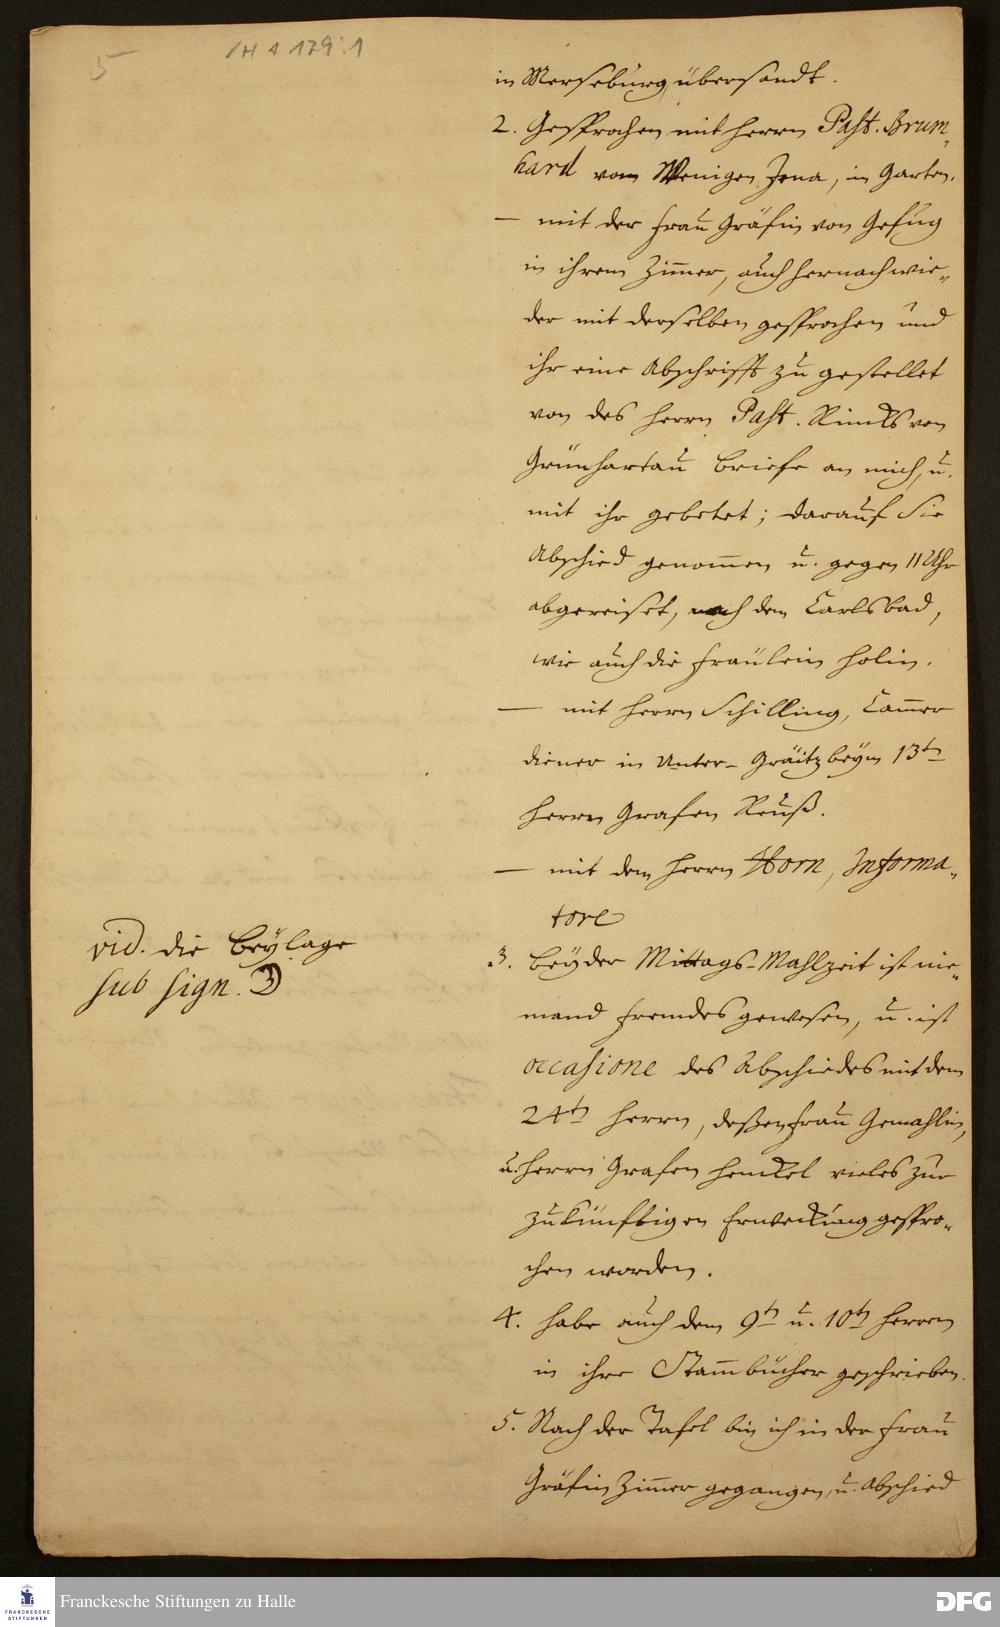 5
/H 4 179:1
in Merseburg übersandt.
2. Gesprochen mit Herrn Past. Brum-
hard vom Wenigen Jena, im Garten.
— mit der Frau Gräfin von Gefug
in ihrem Zimmer, auch hernach wie-
der mit derselben gesprochen und
ihr eine Abschrifft zu gestellet
von des Herrn Past. Rincks von
Grünhartau Briefe an mich, u.
mit ihr gebetet; darauf Sie
Abschied genommen u. gegen 11 Uhr
abgereiset, nach dem Carlsbad,
wie auch die Fräulein Holin.
— mit Herrn Schilling, Cammer
diener in Unter-Gräitz beym 13ten
Herrn Grafen Reuß.
— mit dem Herrn Horn, Informa-
tore
vid. die Beylage
sub sign.
3. Bey der Mittags-Mahlzeit ist nie-
mand fremdes gewesen, u. ist
occasione des Abschiedes mit dem
24ten Herrn, deßen Frau Gemahlin,
u. Herrn Grafen Henckel vieles zur
zukünfftigen Erweckung gespro-
chen worden.
4. Habe auch dem 9ten u. 10ten Herren
in ihre Stammbücher geschrieben.
5. Nach der Tafel bin ich in der Frau
Gräfin Zimmer gegangen, u. Abschied
FRANCKESCHE
STIFTUNGEN
Franckesche Stiftungen zu Halle
DFG